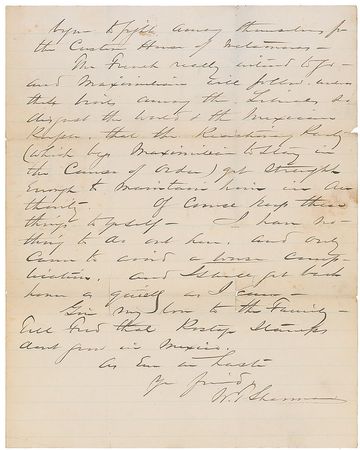 begun to fight among themselves for
the Custom House of Matamoras —
The French really intend to go —
and Maximilian will follow, unless
the broils among the Liberals, so
disgust the world & the Mexican
People, that the Reactionary Party
(which begs Maximilian to stay in
the Cause of Order) get strength
enough to maintain him in au
thority. Of Course keep these
things to yourself — I have no-
thing to do out here, and only
came to avoid a worse comp-
lication, and I shall get back
home as quietly as I can —
Give my love to the Family —
Tell Fred that Postage Stamps
dont grow in Mexico.
As Ever in haste
Yr friend
W. T. Sherman